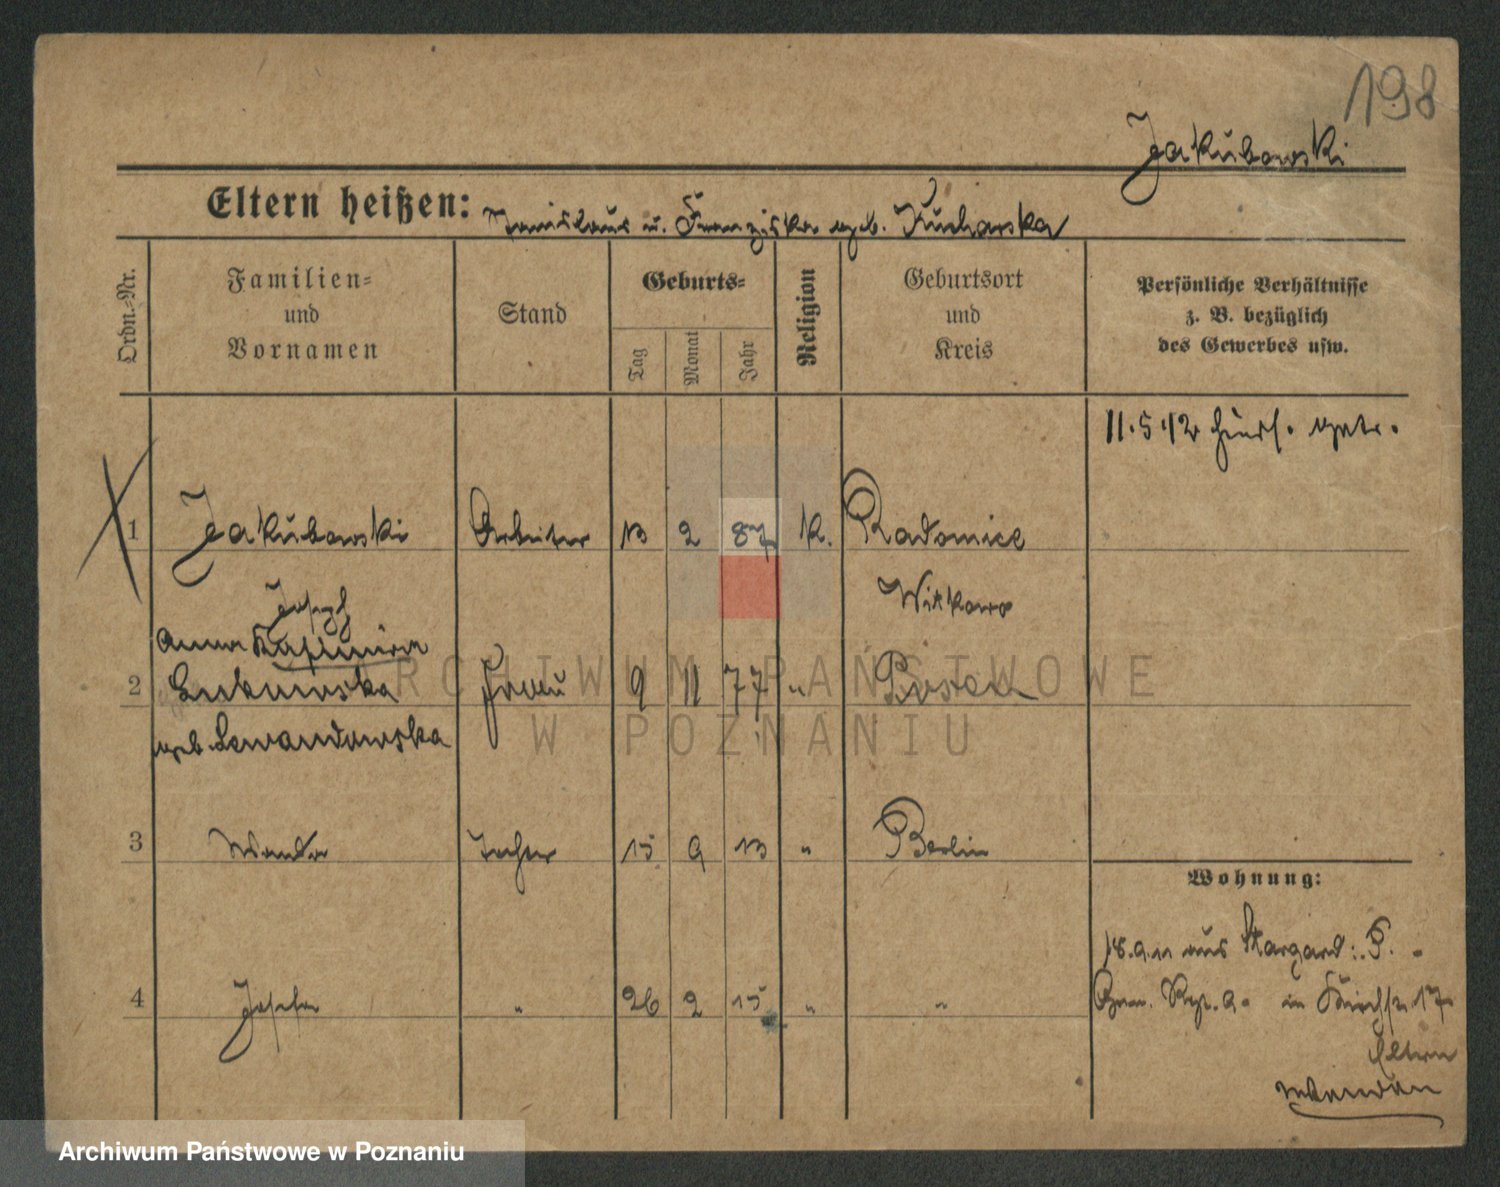 198
Jakubowski
Eltern heißen: Stanislaus u. Franziska geb. Kucharska
Ordn.-Nr.
Familien-
und
Vornamen
Stand
Geburts-
Tag
Monat
Jahr
Religion
Geburtsort
und
Kreis
Persönliche Verhältnisse
z. B. bezüglich
des Gewerbes usw.
11.5.12
1 Jakubowski Arbeiter 13 2 87 K. Radomice
Joseph Witkowo
Anna Kasimira
2 Lukowska Frau 9 11 77 " Posen
geb. Lewandowska
3 Wanda Tochter 15 9 13 " Berlin
Wohnung:
18.9.11 aus Stargard i. P.
4 Josefa " 26 2 15 " "
Gren. Rgt. 9.
Eltern
ARCHIWUM PAŃSTWOWE
W POZNANIU
Archiwum Państwowe w Poznaniu